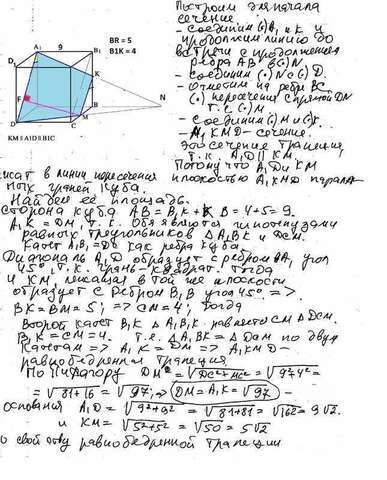 Построим для начала
сечение.
- соединим (·) A₁ и K и
продолжим линию до
встречи с продолжением
ребра AB в (·) N
- соединим (·) N с (·) D.
- Отметим на ребре BC
(·) пересечения с прямой DN
т.е. (·) M
- Соединим (·) M и (·) K.
- A₁KMD - сечение.
Это сечение трапеция,
т.к. A₁D || KM.
Потому что A₁D и KM
A₁ 9 B₁
BR = 5
B1K = 4
D₁
K
F
B
N
D C M
KM||A1D||B1C
лежат в линии пересечения плоскостью A₁KMD
граней куба.
Найдём её площадь.
Сторона куба AB = B₁K + KB = 4+5 = 9.
A₁K = DM, т.к. Они являются гипотенузами
равных треугольников ΔA₁B₁K и DCM.
Катет A₁B₁ = DC как ребра куба.
Диагональ A₁D образует с ребром AA₁ угол
45°, т.к. грань - квадрат. Тогда
и KM, лежащая в той же плоскости
образует с ребром B₁B угол 45° =>
BK = BM = 5; => CM = 4; Тогда
Второй катет B₁K ΔA₁B₁K равен CM ΔDCM.
B₁K = CM = 4. Т.е. ΔA₁B₁K = ΔDCM по двум
катетам => A₁K = DM => A₁KMD -
равнобедренная трапеция
По Пифагору DM = √DC²+MC² = √9²+4² =
= √81+16 = √97; => DM = A₁K = √97 -
основания A₁D = √9²+9² = √81+81 = √162 = 9√2.
и KM = √5²+5² = √50 = 5√2
свойству равнобедренной трапеции